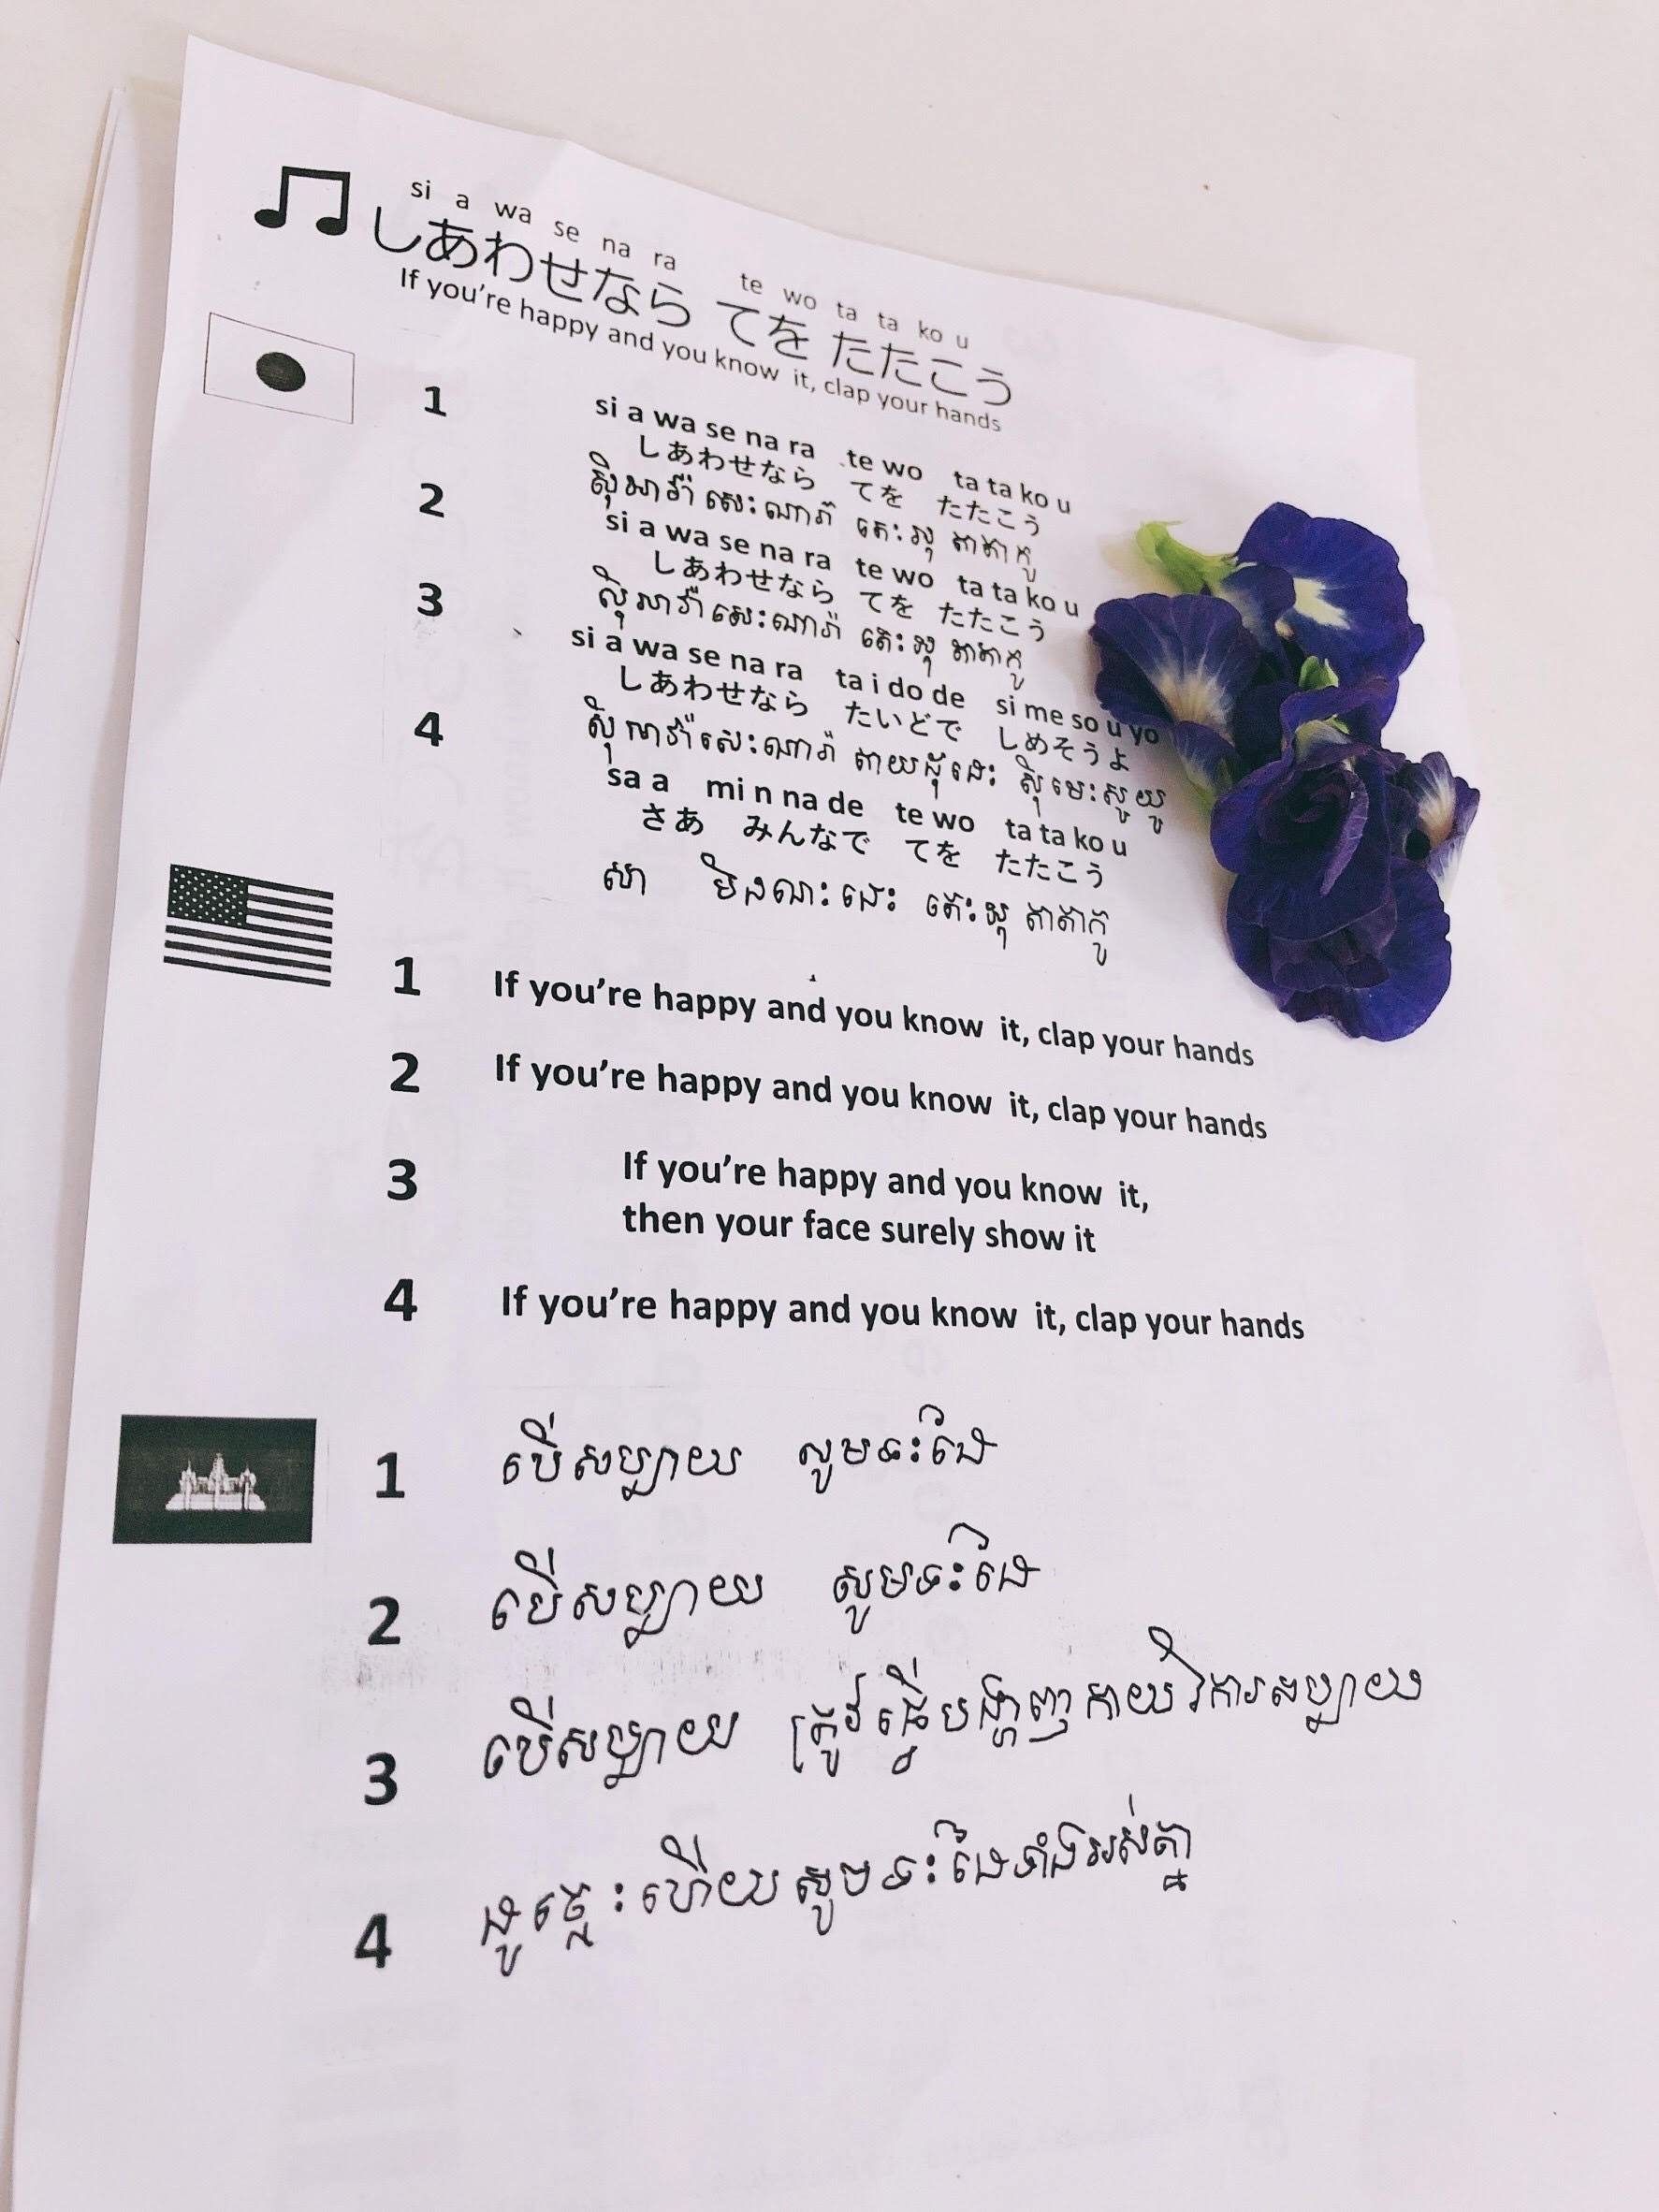 si a wa se na ra te wo ta ta ko u
しあわせなら てを たたこう
If you're happy and you know it, clap your hands
1
si a wa se na ra te wo ta ta ko u
しあわせなら てを たたこう
ស៊ិអាវ៉ា សេះណារ៉ា តេះ តាតាកូ
2
si a wa se na ra te wo ta ta ko u
しあわせなら てを たたこう
ស៊ិអាវ៉ា សេះណារ៉ា តេះ តាតាកូ
3
si a wa se na ra ta i do de si me so u yo
しあわせなら たいどで しめそうよ
ស៊ិអាវ៉ា សេះណារ៉ា តាយដុ៊ដេះ ស៊ិមេះសូយូ
4
sa a mi n na de te wo ta ta ko u
さあ みんなで てを たたこう
សា មិនណះដេះ តេះ តាតាកូ
1 If you're happy and you know it, clap your hands
2 If you're happy and you know it, clap your hands
3 If you're happy and you know it,
then your face surely show it
4 If you're happy and you know it, clap your hands
1 បើសប្បាយ សូមទះដៃ
2 បើសប្បាយ សូមទះដៃ
3 បើសប្បាយ ត្រូវធ្វើបង្ហាញកាយវិការសប្បាយ
4 ដូច្នេះហើយសូមទះដៃទាំងអស់គ្នា